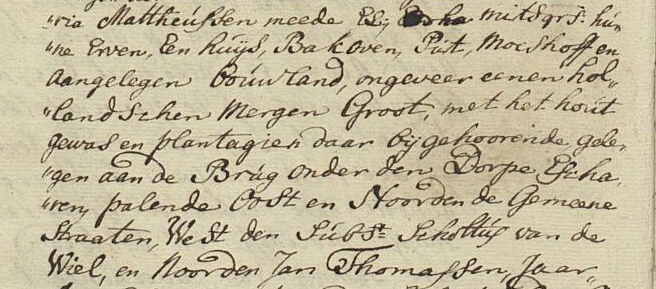 "ria Mattheussen meede Es; Erha mitsgrs: hun
"ne Erven, Een huijs, Bakoven, Put, Moeshoff en
aangelegen bouwland, ongeveer eenen hol„
"landschen Mergen Groot, met het hout
gewas en plantagien daar bij gehoorende, gele„
"gen aan de Brug onder den Dorpe Escha„
"ren, palende Oost en Noorden de Gemeene
Straaten, West den Subst: Scholtus van de
Wiel, en Noorden Jan Thomassen, Jaar„